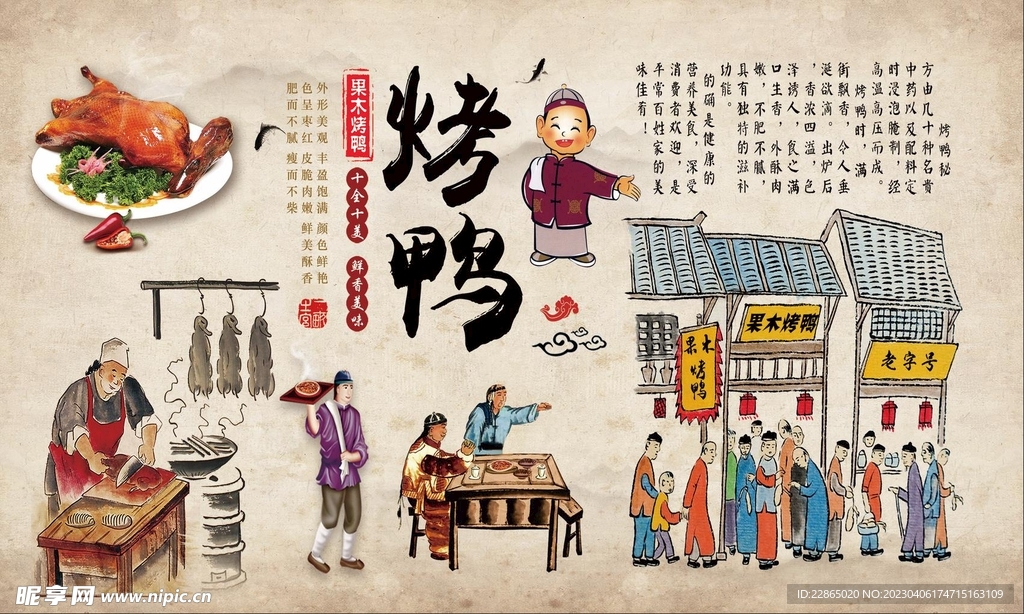 烤鸭
果木烤鸭
十全十美
鲜香美味
外形美观 丰盈饱满 颜色鲜艳
色呈枣红 皮脆肉嫩 鲜美酥香
肥而不腻 瘦而不柴
烤鸭秘
方由几十种名贵
中药以及配料定
时浸泡腌制，经
高温高压而成。
烤鸭时，满
街飘香，令人垂
涎欲滴。出炉后
，香浓四溢，色
泽诱人，食之满
口生香，外酥肉
嫩，不肥不腻，
具有独特的滋补
功能。
的确是健康的
营养美食，深受
消费者欢迎，是
平常百姓家的美
味佳肴！
果木烤鸭
果木烤鸭
老字号
昵享网 www.nipic.cn
ID:22865020 NO:20230406174715163109